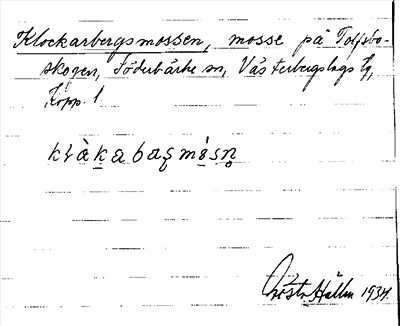 Klockarbergsmossen, mosse på Tolfsbo-
skogen, Söderbärke sn, Västerbergslags tg,
Kopp. l.
Gösta Hallén 1934.